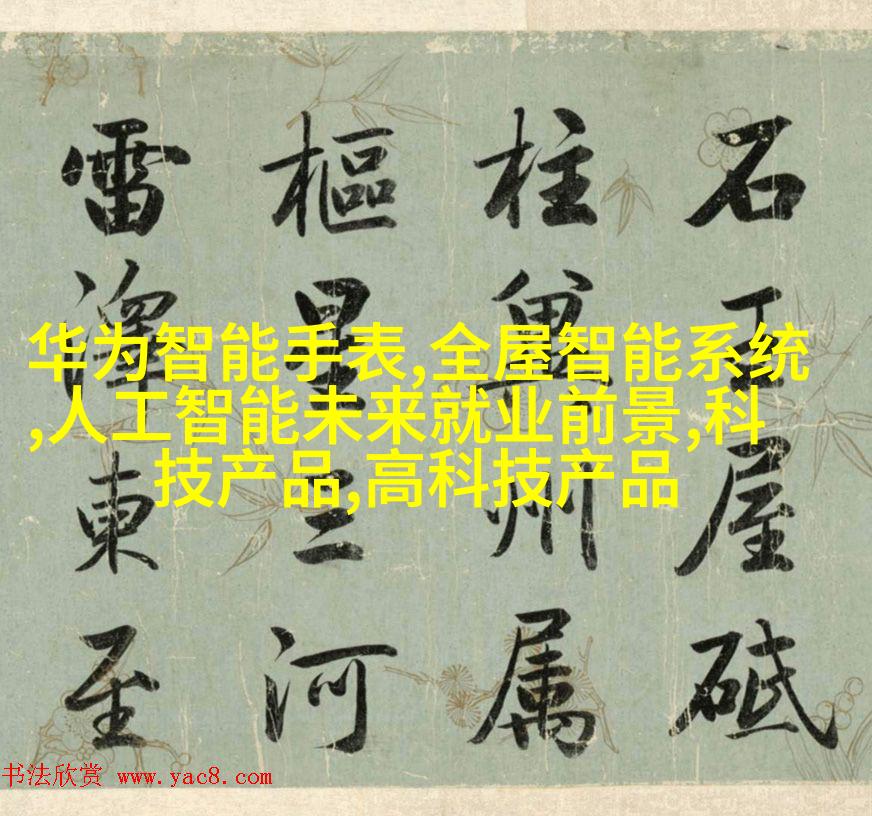 石王屋砥
柱冀州属
樞星三河
雷澤東至
华为智能手表,全屋智能系统
,人工智能未来就业前景,科
技产品,高科技产品
书法欣赏 www.yac8.com